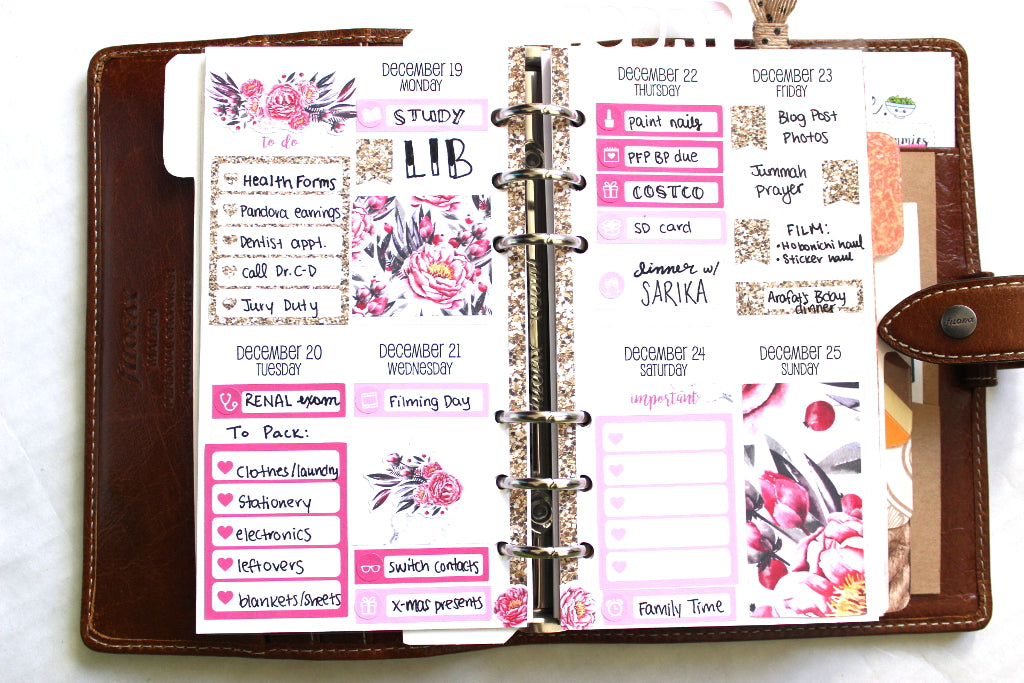 TODAY
to do
Health Forms
Pandora earrings
Dentist appt.
call Dr. C-D
Jury Duty
DECEMBER 19
MONDAY
STUDY
LIB
DECEMBER 20
TUESDAY
RENAL exam
To Pack:
Clothes/laundry
Stationery
electronics
leftovers
blankets/sheets
DECEMBER 21
WEDNESDAY
Filming Day
switch contacts
X-mas presents
DECEMBER 22
THURSDAY
paint nails
PFP BP due
COSTCO
SD card
dinner w/
SARIKA
DECEMBER 23
FRIDAY
Blog Post
Photos
Jummah
prayer
FILM:
• Hobonichi haul
• Sticker haul
Arafat's Bday
dinner
DECEMBER 24
SATURDAY
important
Family Time
DECEMBER 25
SUNDAY
filofax